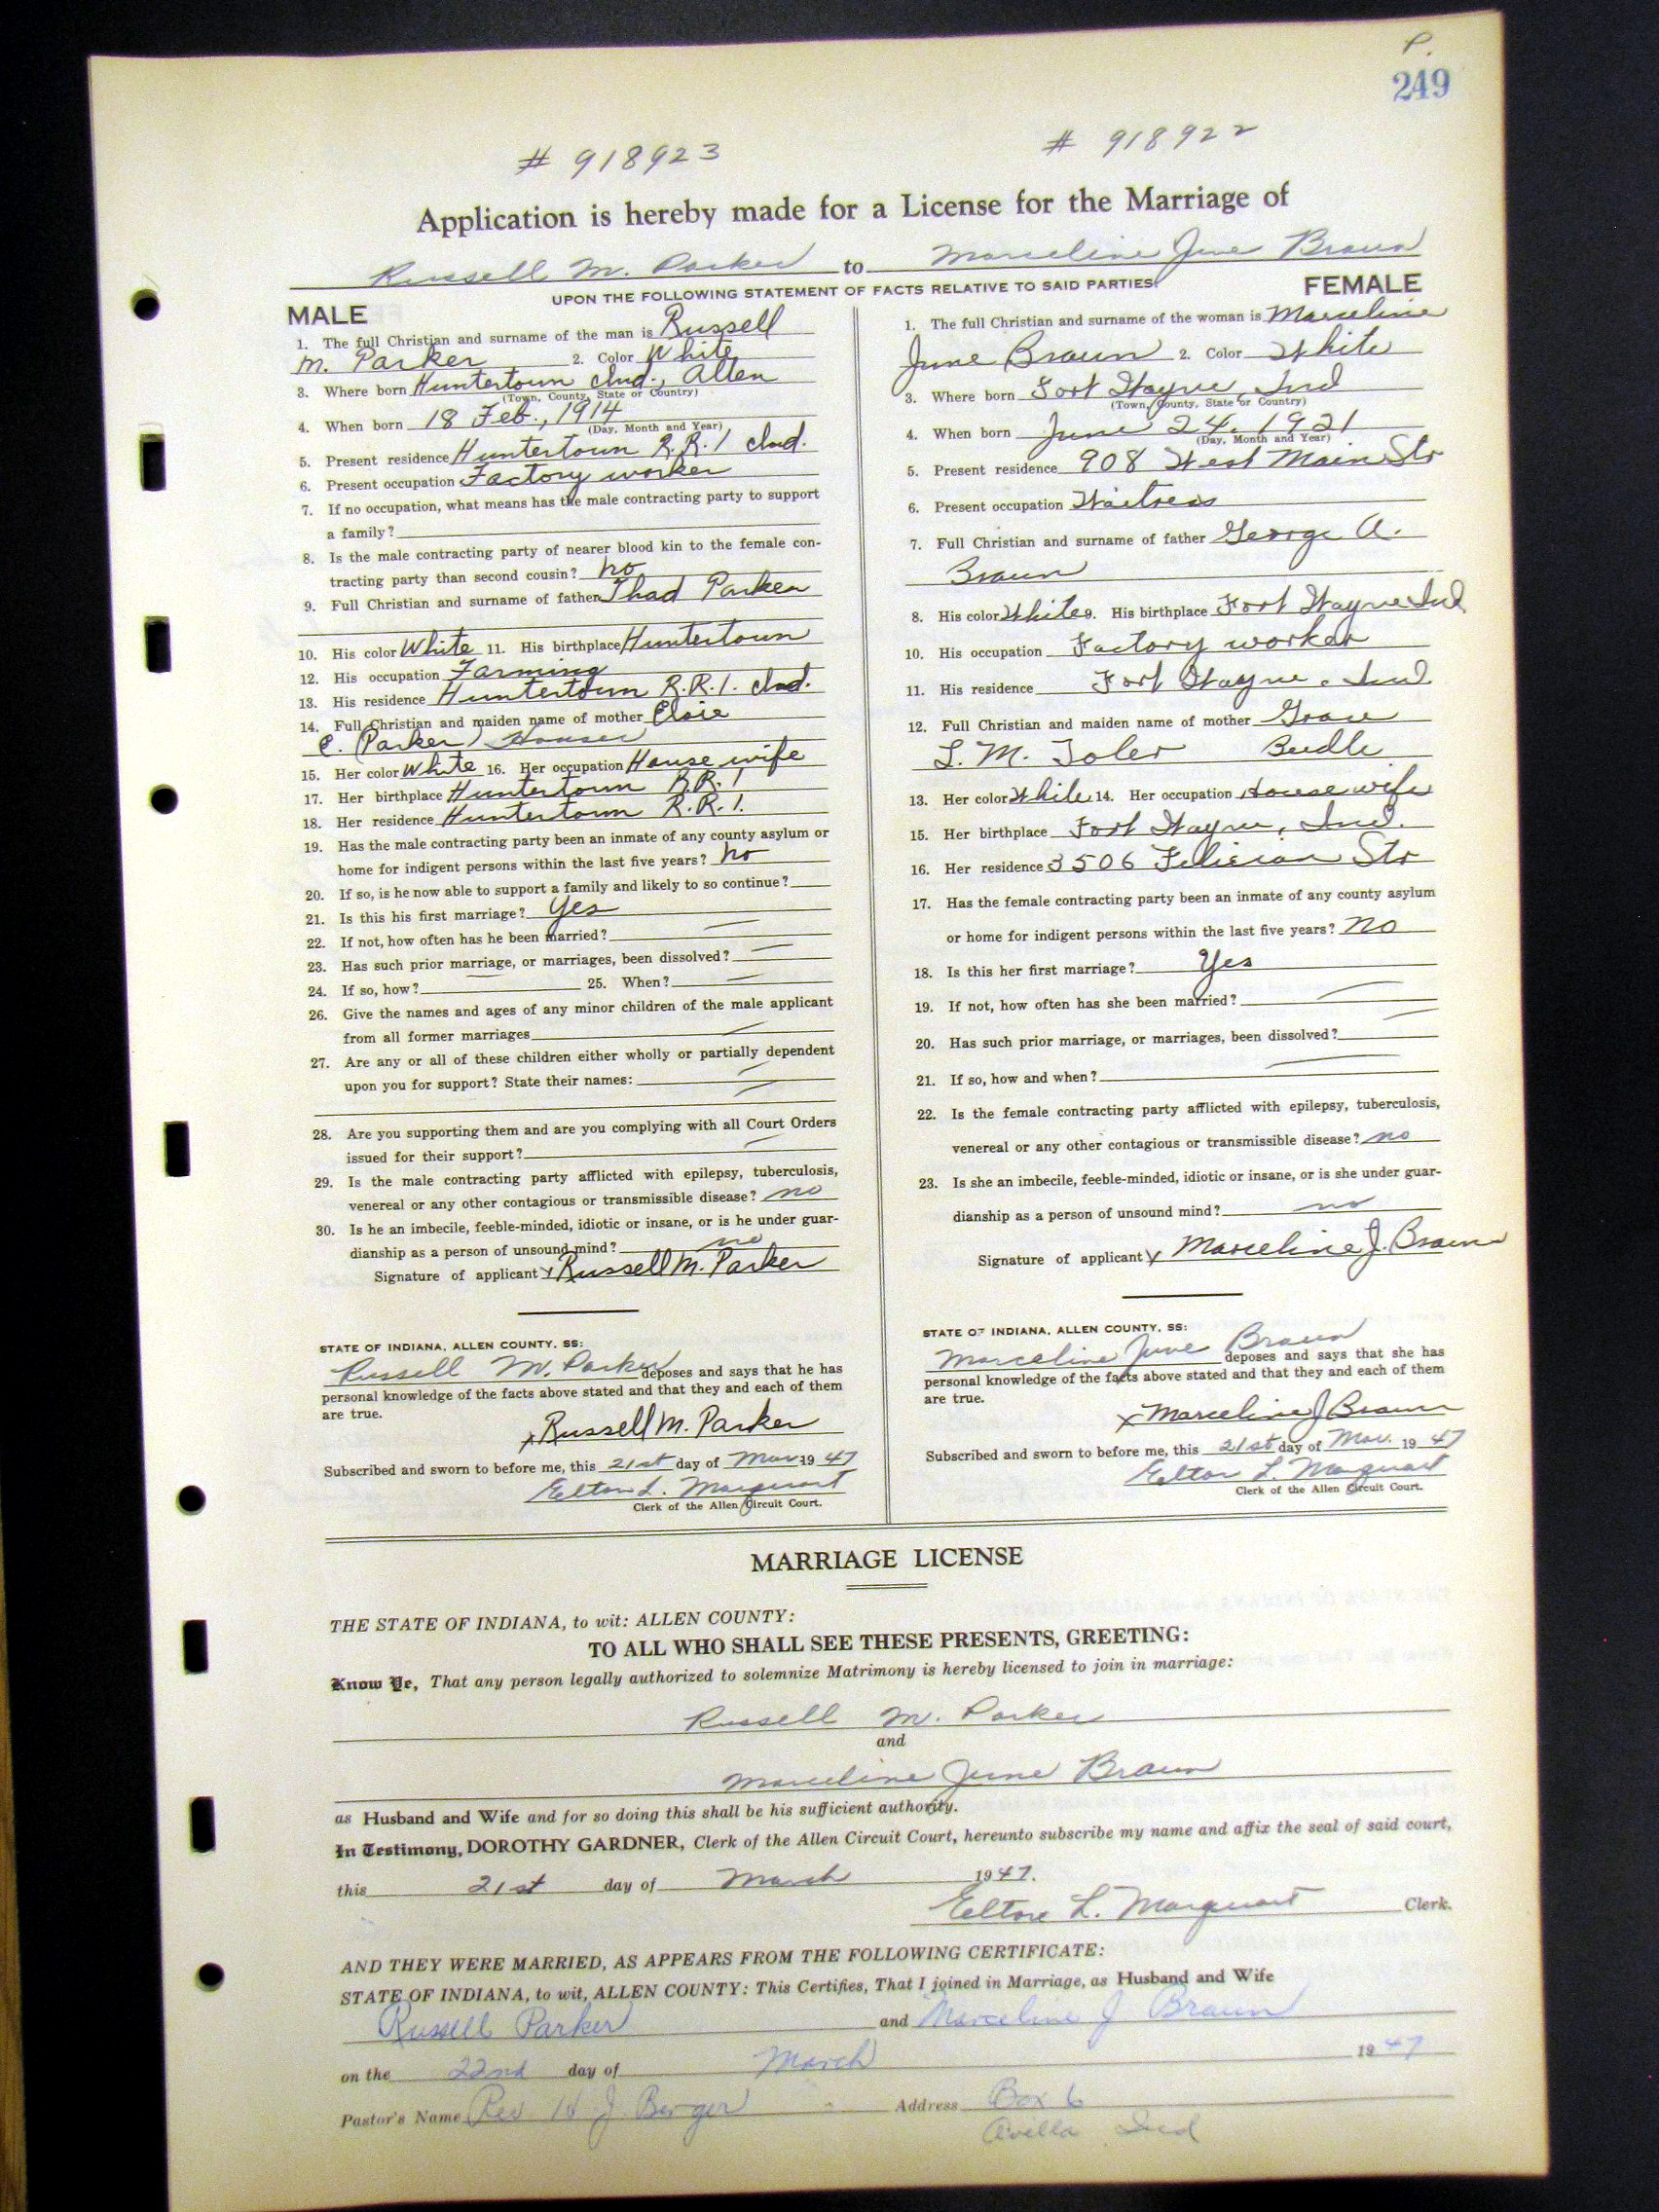 P.
249
# 918923 # 918922
Application is hereby made for a License for the Marriage of
Russell M. Parker to Marceline June Braun
UPON THE FOLLOWING STATEMENT OF FACTS RELATIVE TO SAID PARTIES:
MALE
1. The full Christian and surname of the man is Russell
M. Parker 2. Color White
3. Where born Huntertown Ind., Allen
(Town, County, State or Country)
4. When born 18 Feb., 1914
(Day, Month and Year)
5. Present residence Huntertown R.R. 1 Ind.
6. Present occupation Factory worker
7. If no occupation, what means has the male contracting party to support
a family?
8. Is the male contracting party of nearer blood kin to the female con-
tracting party than second cousin? no
9. Full Christian and surname of father Thad Parker
10. His color White 11. His birthplace Huntertown
12. His occupation Farming
13. His residence Huntertown R.R.1. Ind.
14. Full Christian and maiden name of mother Elsie
E. (Parker) Houser
15. Her color White 16. Her occupation House wife
17. Her birthplace Huntertown R.R. 1
18. Her residence Huntertown R.R.1.
19. Has the male contracting party been an inmate of any county asylum or
home for indigent persons within the last five years? no
20. If so, is he now able to support a family and likely to so continue?
21. Is this his first marriage? Yes
22. If not, how often has he been married?
23. Has such prior marriage, or marriages, been dissolved?
24. If so, how? 25. When?
26. Give the names and ages of any minor children of the male applicant
from all former marriages
27. Are any or all of these children either wholly or partially dependent
upon you for support? State their names:
28. Are you supporting them and are you complying with all Court Orders
issued for their support?
29. Is the male contracting party afflicted with epilepsy, tuberculosis,
venereal or any other contagious or transmissible disease? no
30. Is he an imbecile, feeble-minded, idiotic or insane, or is he under guar-
dianship as a person of unsound mind? no
Signature of applicant x Russell M. Parker
STATE OF INDIANA, ALLEN COUNTY, SS:
Russell M. Parker deposes and says that he has
personal knowledge of the facts above stated and that they and each of them
are true.
x Russell M. Parker
Subscribed and sworn to before me, this 21st day of Mar. 1947
Eelton L. Marquart
Clerk of the Allen Circuit Court.
FEMALE
1. The full Christian and surname of the woman is Marceline
June Braun 2. Color White
3. Where born Fort Wayne, Ind
(Town, County, State or Country)
4. When born June 24, 1921
(Day, Month and Year)
5. Present residence 908 West Main Str
6. Present occupation Waitress
7. Full Christian and surname of father George A.
Braun
8. His color White 9. His birthplace Fort Wayne Ind
10. His occupation Factory worker
11. His residence Fort Wayne, Ind
12. Full Christian and maiden name of mother Grace
L. M. Toler Beedle
13. Her color White 14. Her occupation House wife
15. Her birthplace Fort Wayne, Ind.
16. Her residence 3506 Felician Str
17. Has the female contracting party been an inmate of any county asylum
or home for indigent persons within the last five years? no
18. Is this her first marriage? Yes
19. If not, how often has she been married?
20. Has such prior marriage, or marriages, been dissolved?
21. If so, how and when?
22. Is the female contracting party afflicted with epilepsy, tuberculosis,
venereal or any other contagious or transmissible disease? no
23. Is she an imbecile, feeble-minded, idiotic or insane, or is she under guar-
dianship as a person of unsound mind? no
Signature of applicant x Marceline J. Braun
STATE OF INDIANA, ALLEN COUNTY, SS:
Marceline June Braun deposes and says that she has
personal knowledge of the facts above stated and that they and each of them
are true.
x Marceline J Braun
Subscribed and sworn to before me, this 21st day of Mar. 1947
Eelton L. Marquart
Clerk of the Allen Circuit Court.
MARRIAGE LICENSE
THE STATE OF INDIANA, to wit: ALLEN COUNTY:
TO ALL WHO SHALL SEE THESE PRESENTS, GREETING:
Know Ye, That any person legally authorized to solemnize Matrimony is hereby licensed to join in marriage:
Russell M. Parker
and
Marceline June Braun
as Husband and Wife and for so doing this shall be his sufficient authority.
In Testimony, DOROTHY GARDNER, Clerk of the Allen Circuit Court, hereunto subscribe my name and affix the seal of said court,
this 21st day of March 1947.
Eelton L. Marquart Clerk.
AND THEY WERE MARRIED, AS APPEARS FROM THE FOLLOWING CERTIFICATE:
STATE OF INDIANA, to wit, ALLEN COUNTY: This Certifies, That I joined in Marriage, as Husband and Wife
Russell Parker and Marceline J Braun
on the 22nd day of March 1947
Pastor's Name Rev H. J. Berger Address Box 6
Avilla Ind